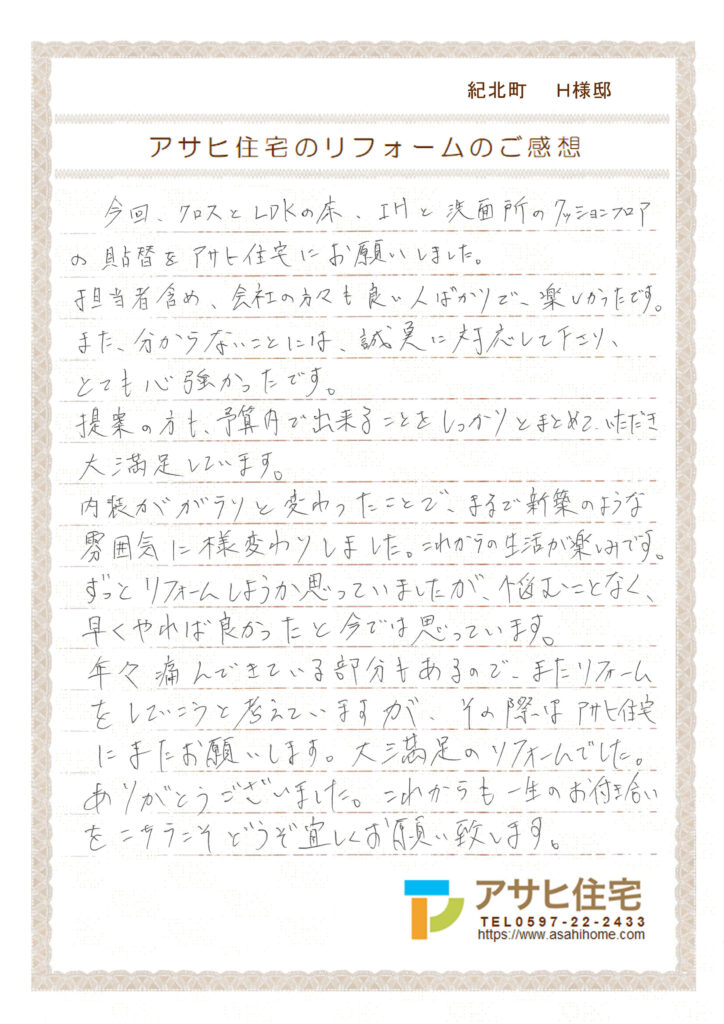 紀北町　H様邸
アサヒ住宅のリフォームのご感想
今回、クロスとLDKの床、IHと洗面所のクッションフロア
の貼替をアサヒ住宅にお願いしました。
担当者含め、会社の方々も良い人ばかりで、楽しかったです。
また、分からないことには、誠実に対応して下さり、
とても心強かったです。
提案の方も、予算内で出来ることをしっかりとまとめて、いただき
大満足しています。
内装がガラリと変わったことで、まるで新築のような
雰囲気に様変わりしました。これからの生活が楽しみです。
ずっとリフォームしようか思っていましたが、悩むことなく、
早くやれば良かったと今では思っています。
年々痛んできている部分もあるので、またリフォーム
をしていこうと考えていますが、その際はアサヒ住宅
にまたお願いします。大満足のリフォームでした。
ありがとうございました。これからも一生のお付き合い
をこちらこそどうぞ宜しくお願い致します。
アサヒ住宅
TEL0597-22-2433
https://www.asahihome.com